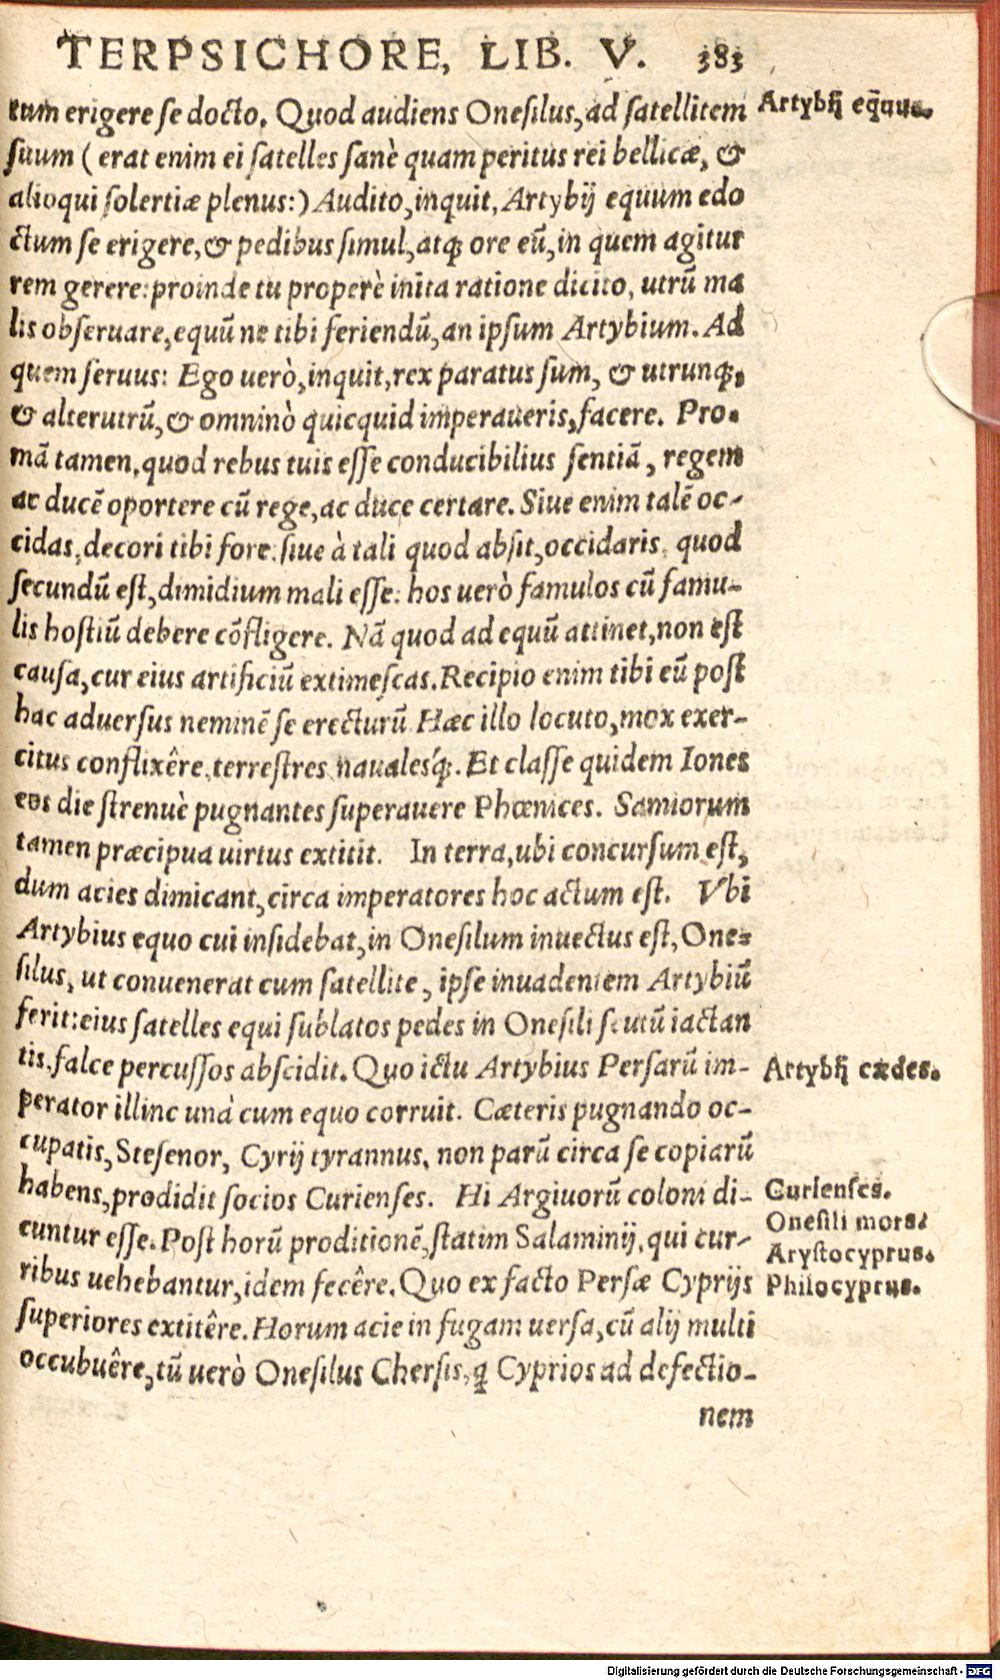 TERPSICHORE, LIB. V. 383
tum erigere se docto. Quod audiens Onesilus, ad satellitem
suum (erat enim ei satelles sanè quam peritus rei bellicæ, &
alioqui solertiæ plenus:) Audito, inquit, Artybij equum edo
ctum se erigere, & pedibus simul, atq; ore eũ, in quem agitur
rem gerere: proinde tu properè inita ratione dicito, utrũ ma
lis obseruare, equũ ne tibi feriendũ, an ipsum Artybium. Ad
quem seruus: Ego uerò, inquit, rex paratus sum, & utrunq;,
& alterutrũ, & omninò quicquid imperaueris, facere. Pro-
mã tamen, quod rebus tuis esse conducibilius sentiã, regem
ac ducẽ oportere cũ rege, ac duce certare. Siue enim talẽ oc-
cidas, decori tibi fore: siue à tali quod absit, occidaris, quod
secundũ est, dimidium mali esse: hos uerò famulos cũ famu-
lis hostiũ debere cõfligere. Nã quod ad equũ attinet, non est
causa, cur eius artificiũ extimescas. Recipio enim tibi eũ post
hac aduersus neminẽ se erecturũ. Hæc illo locuto, mox exer-
citus conflixêre, terrestres, naualesq́;. Et classe quidem Iones
eos die strenuè pugnantes superauere Phœnices. Samiorum
tamen præcipua uirtus extitit. In terra, ubi concursum est,
dum acies dimicant, circa imperatores hoc actum est. Vbi
Artybius equo cui insidebat, in Onesilum inuectus est, One-
silus, ut conuenerat cum satellite, ipse inuadentem Artybiũ
ferit: eius satelles equi sublatos pedes in Onesili scutũ iactan
tis, falce percussos abscidit. Quo ictu Artybius Persarũ im-
perator illinc unà cum equo corruit. Cæteris pugnando oc-
cupatis, Stesenor, Cyrij tyrannus, non parũ circa se copiarũ
habens, prodidit socios Curienses. Hi Argiuorũ coloni di-
cuntur esse. Post horũ proditionẽ, statim Salaminij, qui cur-
ribus uehebantur, idem fecêre. Quo ex facto Persæ Cyprijs
superiores extitêre. Horum acie in fugam uersa, cũ alij multi
occubuêre, tũ uerò Onesilus Chersis, q̃ Cyprios ad defectio-
nem
Artybij eq̃uus.
Artybij cædes.
Curienses.
Onesili mors.
Arystocyprus.
Philocyprus.
Digitalisierung gefördert durch die Deutsche Forschungsgemeinschaft - DFG